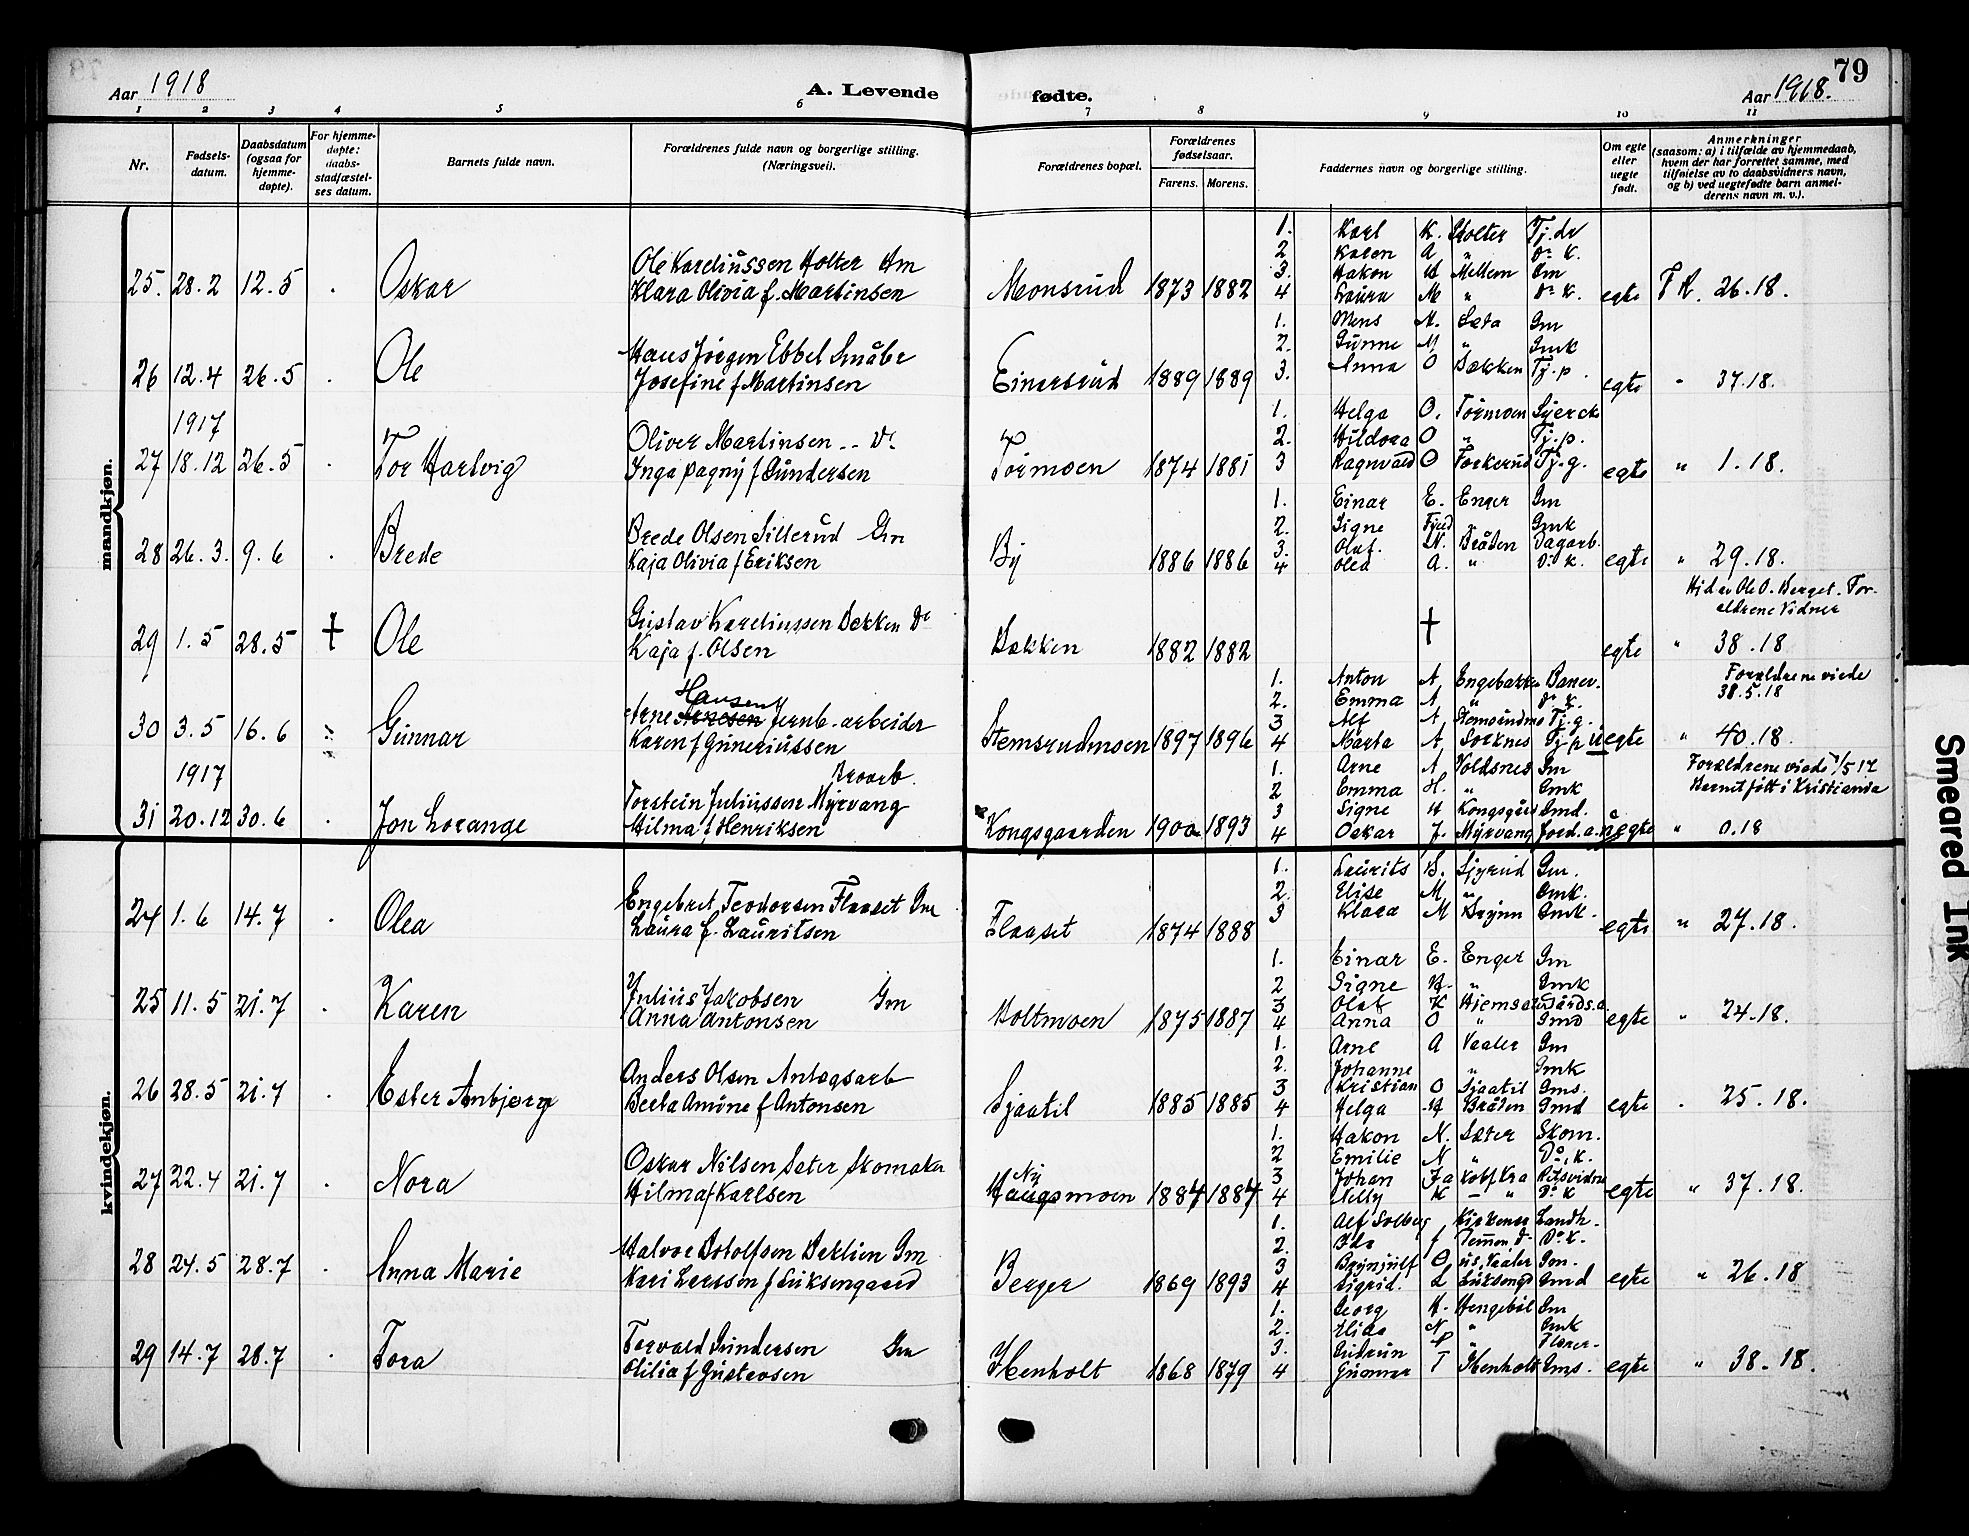 79
Aar 1918 A. Levende fødte. Aar 1918.
1 2 3 4 5 6 7 8 9 10 11
Nr.
Fødsels-
datum.
Daabsdatum
(ogsaa for
hjemme-
døpte).
For hjemme-
døpte:
daabs-
stadfæstel-
ses datum.
Barnets fulde navn.
Forældrenes fulde navn og borgerlige stilling.
(Næringsvei).
Forældrenes bopæl.
Forældrenes
fødselsaar.
Farens. Morens.
Faddernes navn og borgerlige stilling.
Om egte
eller
uegte
født.
Anmerkninger
(saasom: a) i tilfælde av hjemmedaab,
hvem der har forrettet samme, med
tilføielse av to daabsvidners navn,
og b) ved uegtefødte barn anmel-
derens navn m. v.).
mandkjøn.
25. 28.2 12.5 . Oskar
Ole Kareliussen Holter Gm
Klara Olivia f. Martinsen
Monsrud 1873 1882
1. Karl K. Holter Tj.dr
2 Karen A " Do K.
3. Hakon H Mellem Gm
4 Laura M " Do K.
egte F R. 26.18.
26 12.4 26.5 . Ole
Hans Jørgen Ebbel Småbr
Josefine f Martinsen
Einarsrud 1889 1889
1. Mens M. Sæta Gm
2. Gunne M " Gmk
3. Anna O Bakken Tj.p.
egte " 37.18.
1917
27 18.12 26.5 . Tor Hartvig
Oliver Martinsen -- Do
Inga Dagny f Gundersen
Tormoen 1874 1881
1. Helga O. Tormoen
2. Hildora O " Tj.p.
3 Ragnvald O Forkerud Tj.g.
egte " 1.18.
28 26.3. 9.6 . Brede
Brede Olsen Sillerud Gm
Kaja Olivia f Eriksen
By 1886 1886
1. Einar E. Enger Gm
2. Signe " Gmk
3. Olaf. N. Bråten Dagarb.
4 Olea A. " Do K.
egte " 29.18.
29 1.5 28.5 † Ole
Gustav Kareliussen Bakken Do
Kaja f. Olsen
Bakken 1882 1882
†
egte
Hjd av Ole O. Berget. For-
ældrene Vidner
" 38.18
30 3.5 16.6 Gunnar
Hansen
Arne Jernb.-arbeider
Karen f Guneriussen
Stemsrudmoen 1897 1896
1. Anton A. Engebakke Banev.
2. Emma A " Do K.
3 Alf A Stemsrudmo Tj.g.
4 Marta A. Solknes Tj p
uegte
Forældrene viede
38.5.18
" 40.18.
1917
31 20.12 30.6 . Jon Lorange
Torstein Juliussen Myrvang
Hilma f Henriksen
Kongsgaarden 1900 1893
1. Arne A. Voldsnes Gm
2 Emma H. " Gmk
3 Signe H Kongsgård Gmd.
4 Oskar J. Myrvang Jord.a.
uegte
Forældrene viede 1/5 17
Barnet født i Kristiania
" 0.18
kvindekjøn.
24 1.6 14.7 . Olea
Engebret Teodorsen Flaaset Gm
Laura f. Lauritsen
Flaaset 1874 1888
1. Laurits B. Sjyrud Gm.
2. Elise M. " Gmk.
3 Klara M Brynn Gmk.
egte " 27.18.
25 11.5 21.7 . Karen
Julius Jakobsen Gm
Anna Antonsen
Holtmoen 1875 1887
1. Einar E. Enger Gm
2 Signe " Gmk
3 Olaf K Hjemsæt
4 Anna O " Gmd
egte " 24.18.
26 28.5 21.7 . Ester Anbjørg
Anders Olsen Anlægsarb
Berta Amine f Antonsen
Sjaatil 1885 1885
1. Arne A Vaaler Gm
2. Johanne " Gmk
3 Kristian O Sjaatil Gms.
4 Helga Bråten Gmd
egte . 25.18.
27 22.4 21.7 . Nora
Oskar Nilsen Sæter Skomaker
Hilma f Karlsen
Ny
Haugsmoen 1884 1884
1. Hakon N. Sæter Skom.
2 Emilie N " Do. K.
3 Johan
4 Nelly K - " Do K
egte " 37.18.
28 24.5 28.7 . Anna Marie
Halvor Botolfsen Baklien Gm
Kari Larssen f Luksengaard
Berger 1869 1893
1. Alf Solberg Kirkener Landh.
2. Ida f Do K.
3 Brynjulf O Vaaler Gm.
4 Sigrid. L Luksengd Gmd
egte " 26.18
29 14.7 28.7 . Tora
Torvald Gundersen Gm
Olilia f Gustavsen
Ihenholt 1868 1879
1. Georg H. Hengebøl Gm
2. Hilda N " Gmk
3. Gudrun "
4 Gunnar T Ihenholt Gms.
egte " 38.18.
Smeared Ink